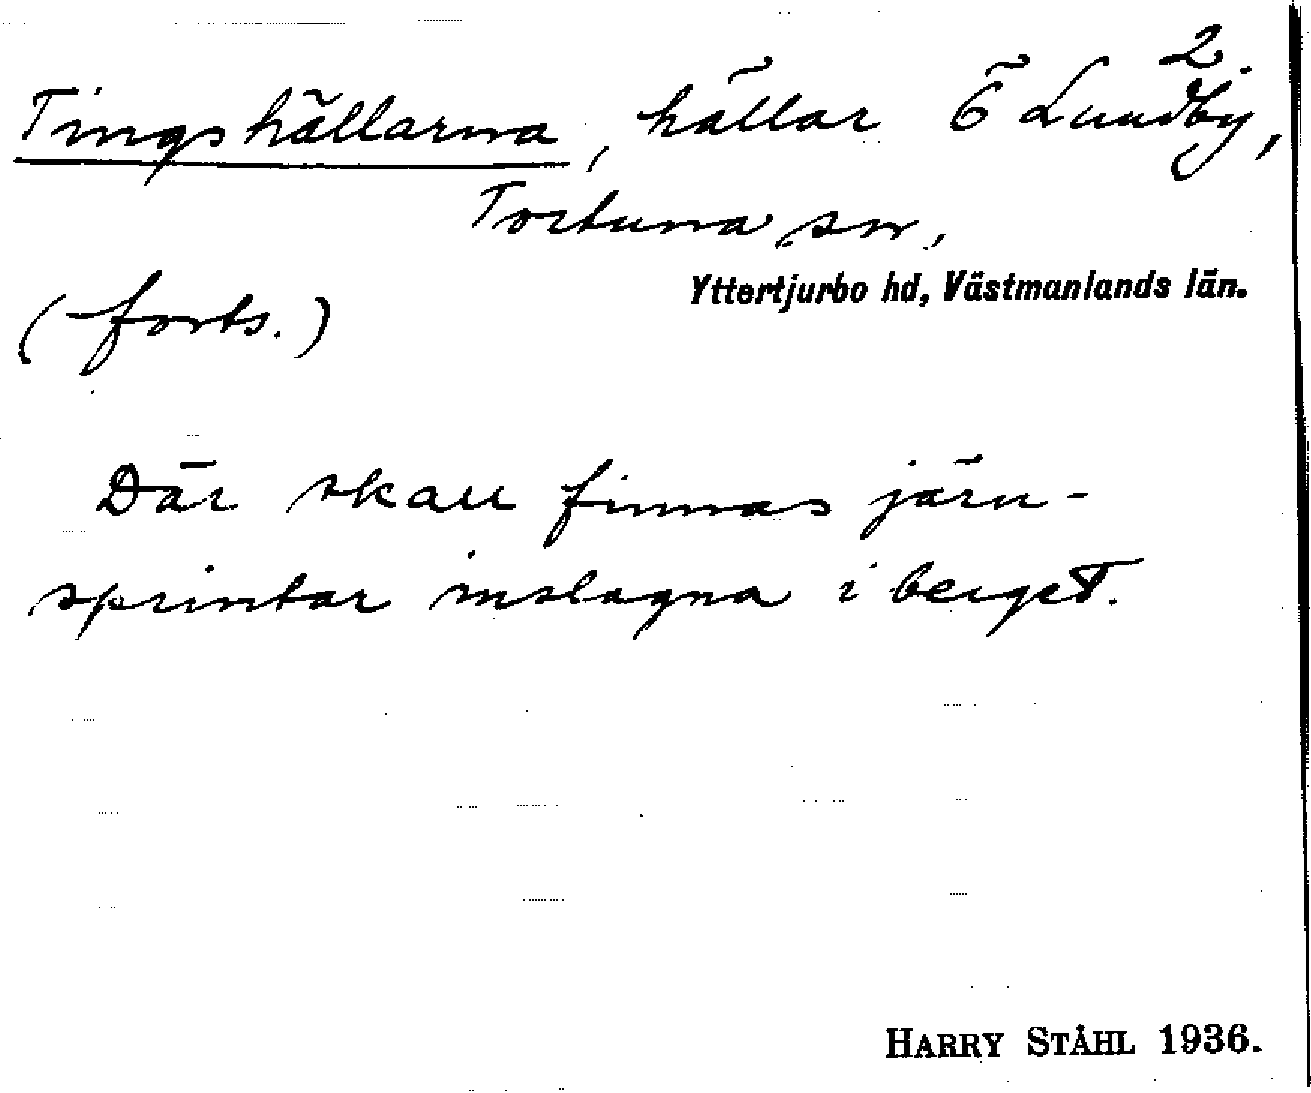 2.
Tingshällarna, hällar Ö Lundby,
Tortuna sn,
Yttertjurbo hd, Västmanlands län.
(forts.)
Där skall finnas järn-
sprintar inslagna i berget.
HARRY STÅHL 1936.